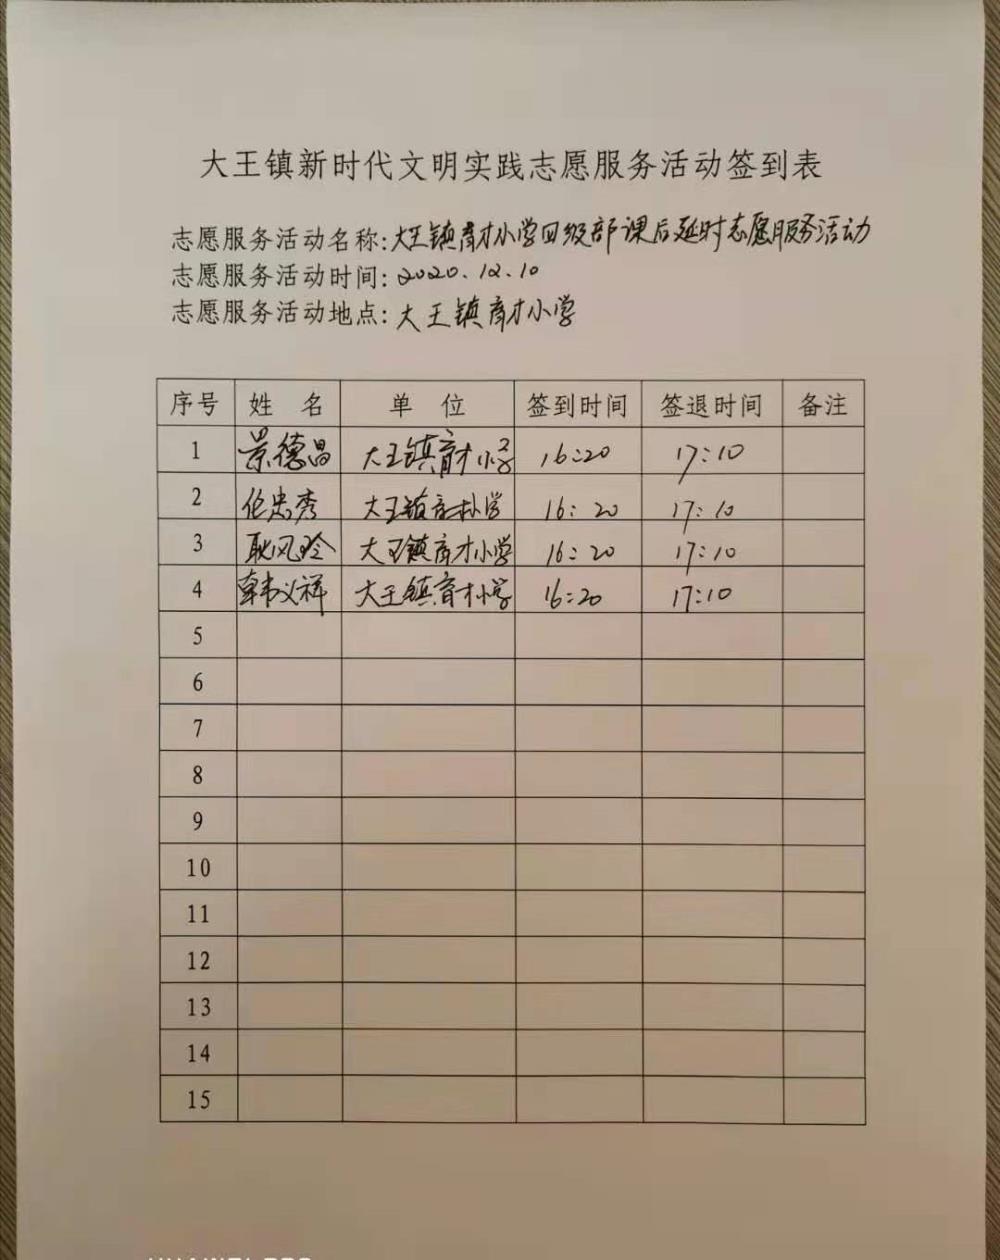 大王镇新时代文明实践志愿服务活动签到表
志愿服务活动名称:大王镇育才小学四级部课后延时志愿服务活动
志愿服务活动时间:2020.12.10
志愿服务活动地点:大王镇育才小学
序号 姓 名 单 位 签到时间 签退时间 备注
1 景德昌 大王镇育才小学 16:20 17:10
2 伦忠秀 大王镇育才小学 16:20 17:10
3 耿风玲 大王镇育才小学 16:20 17:10
4 韩义祥 大王镇育才小学 16:20 17:10
5
6
7
8
9
10
11
12
13
14
15